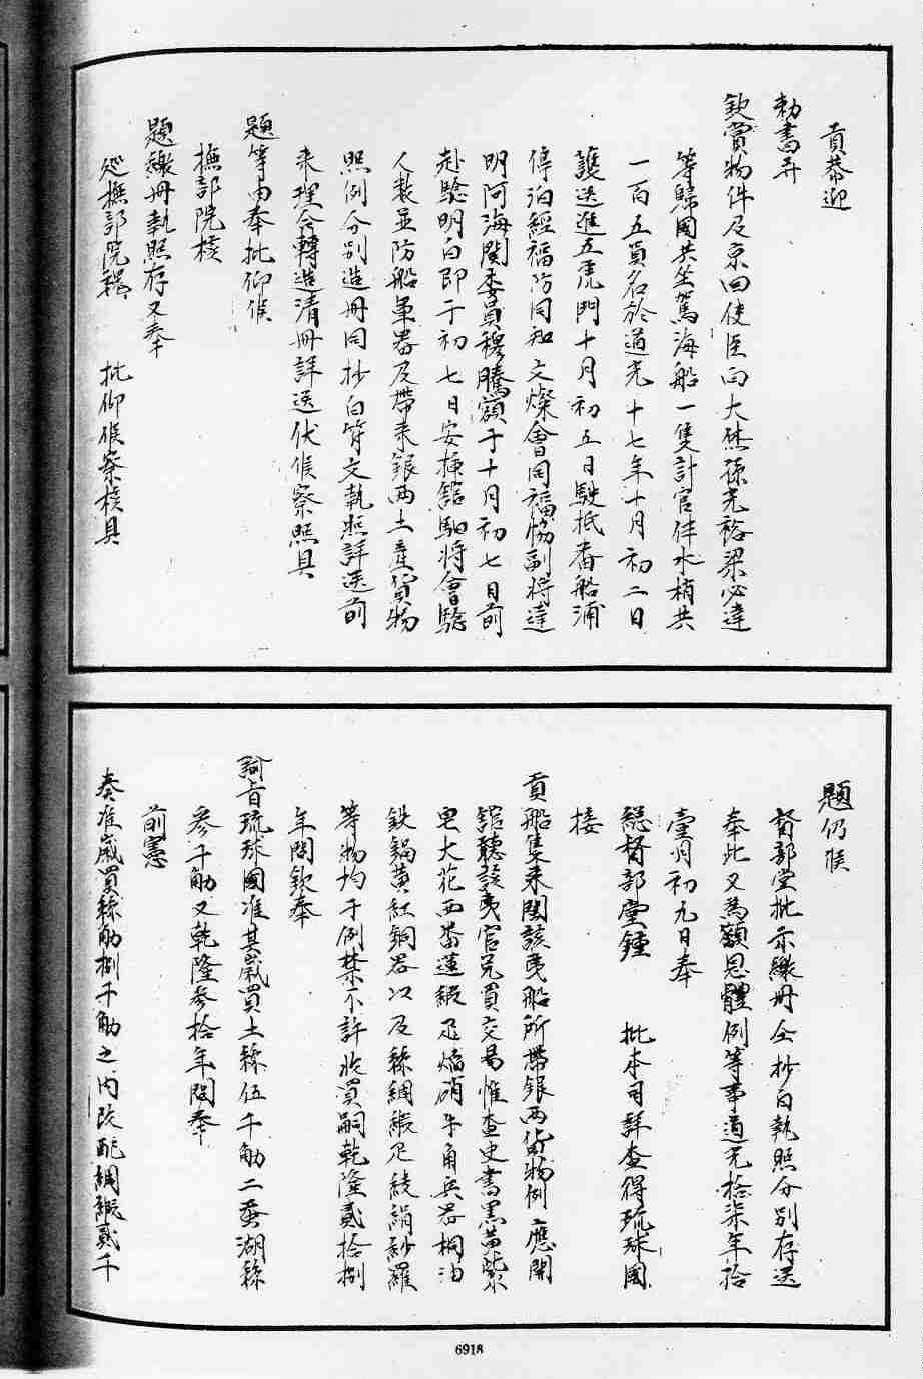 貢恭迎
勅書并
欽賞物件及京回使臣向大烋孫光裕梁必達
等歸國共坐駕海船一隻計官伴水梢共
一百五員名於道光十七年十月初二日
護送進五虎門十月初五日駛抵番船浦
停泊經福防同知文燦會同福協副將達
明阿海關委員穆騰額于十月初七日前
赴驗明白即于初七日安插館馹將會驗
人数並防船軍器及帶来銀两土產貨物
照例分別造冊同抄白符文執照詳送前
来理合轉造清冊詳送伏候察照具
題等由奉批仰候
撫部院核
題繳冊執照存又奉
廵撫部院 批仰候察核具
題仍候
督部堂批示繳冊仝抄白執照分別存送
奉此又為額恩體例等事道光拾柒年拾
壹月初九日奉
總督部堂鍾 批本司詳查得琉球國
接
貢船隻来閩該夷船所帶銀两貨物例應開
舘聽該夷官兑買交易惟查史書黑黄紫
皂大花西番蓮緞疋焔硝牛角兵器桐油
鉄鍋黄紅銅器以及絲綢緞疋綾絹紗羅
等物均于例禁不許收買嗣乾隆貳拾捌
年間欽奉
諭旨琉球國准其歲買土絲伍千觔二蚕湖絲
參千觔又乾隆參拾年間奉
前憲
奏准歲買絲觔捌千觔之内改配綢緞貳千
6918